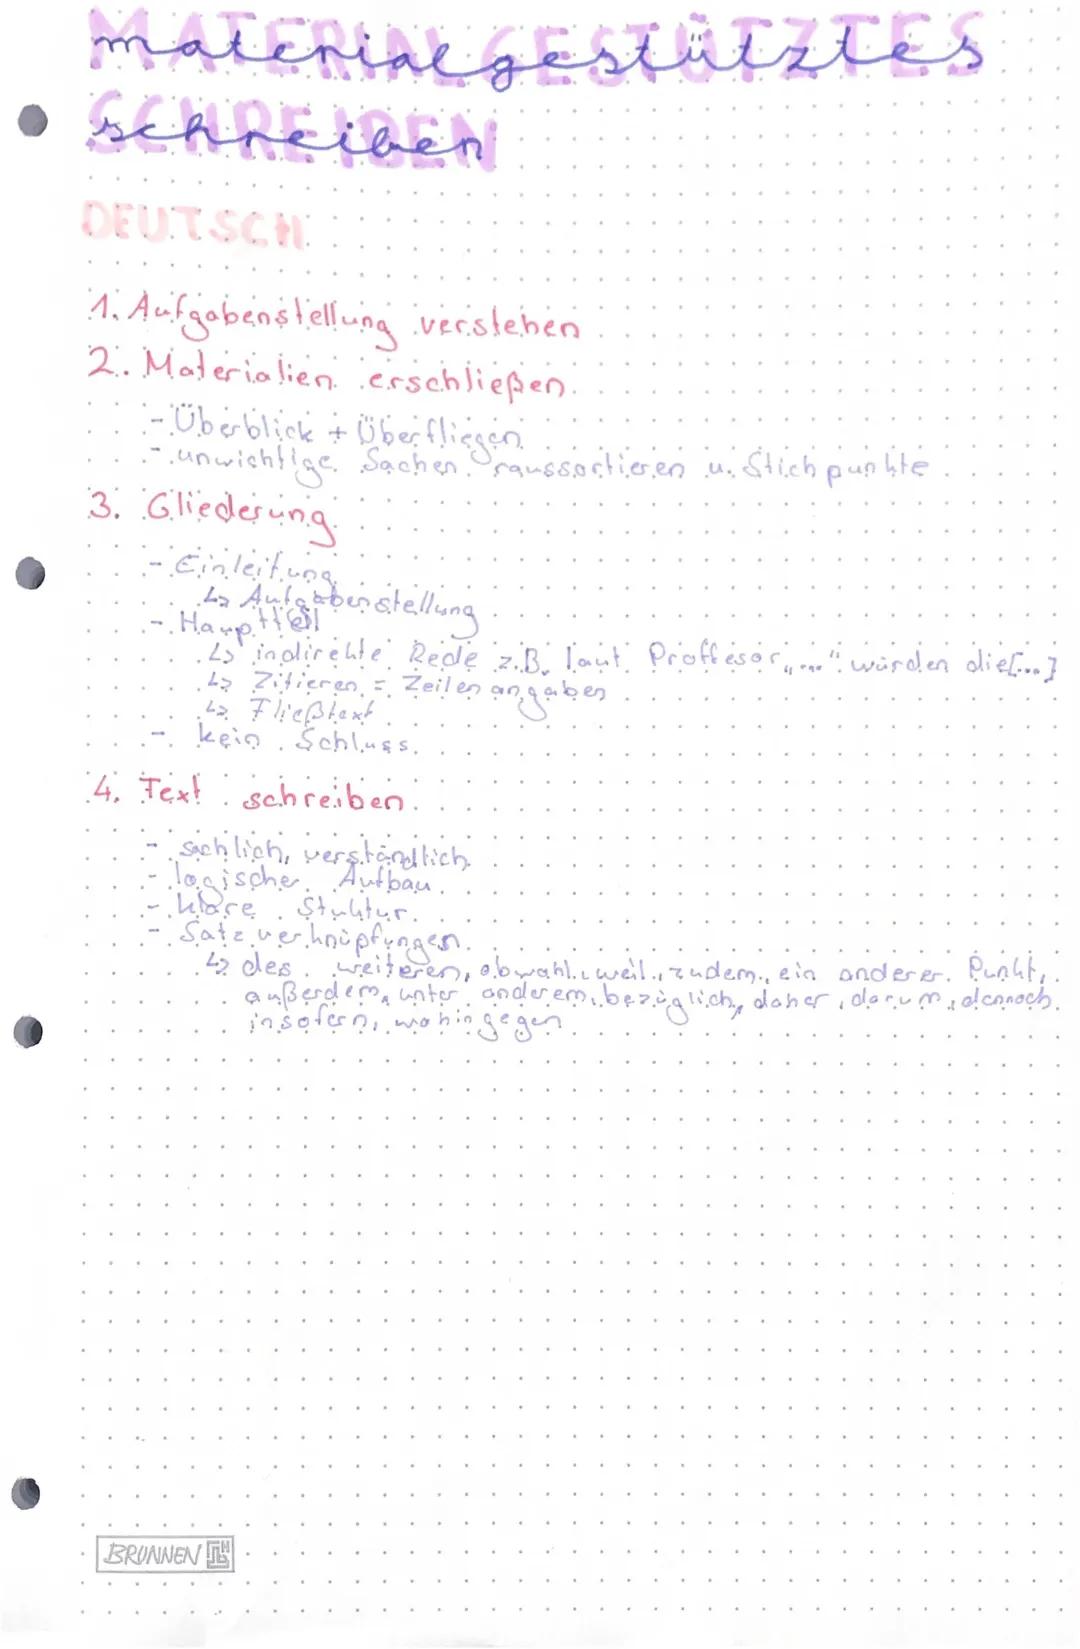 MATERIALGESTÜTZTES
materialgestütztes
SCHREIBEN
schreiben
DEUTSCH
1. Aufgabenstellung verstehen
2. Materialien erschließen
- Überblick + Überfliegen
- unwichtige Sachen raussortieren u. Stichpunkte
3. Gliederung
- Einleitung
↳ Aufgabenstellung
- Hauptteil
↳ indirekte Rede z.B. laut Proffesor „..." würden die[...]
↳ Zitieren = Zeilenangaben
↳ Fließtext
- kein Schluss
4. Text schreiben
- sachlich, verständlich
- logischer Aufbau
- klare Stuktur
- Satzverknüpfungen
↳ des weiteren, obwahl, weil, zudem, ein anderer Punkt,
außerdem, unter anderem, bezüglich, daher, darum, dennoch
insofern, wohingegen
BRUNNEN